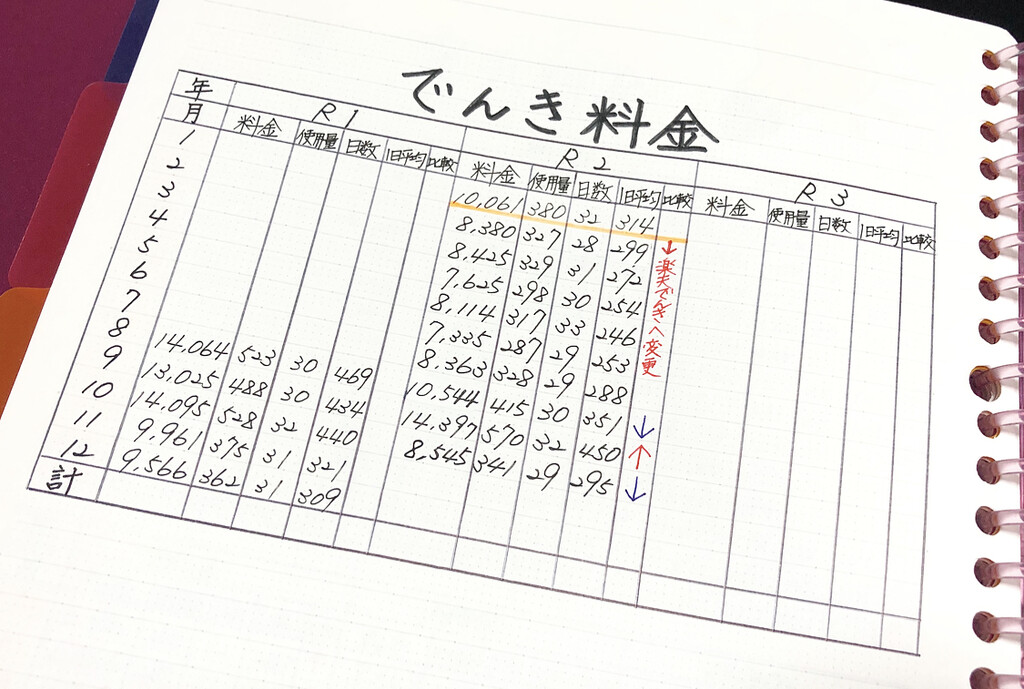 でんき料金
年 R1 R2 R3
月 料金 使用量 日数 1日平均 比較 料金 使用量 日数 1日平均 比較 料金 使用量 日数 1日平均 比較
1 10,061 380 32 314
2 8,380 327 28 299 ↓
3 8,425 329 31 272
4 7,625 298 30 254
5 8,114 317 33 246
6 7,335 287 29 253
7 8,363 328 29 288
楽天でんきへ変更
8 14,064 523 30 469 10,544 415 30 351 ↓
9 13,025 488 30 434 14,397 570 32 450 ↑
10 14,095 528 32 440 8,545 341 29 295 ↓
11 9,961 375 31 321
12 9,566 362 31 309
計